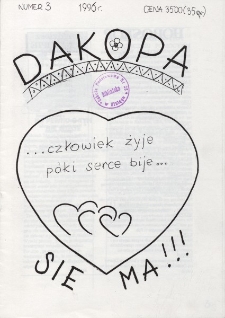 NUMER 3 1996 r. CENA 3500 (35gr)
DAKOPA
...człowiek żyje
póki serce bije...
SIE MA!!!